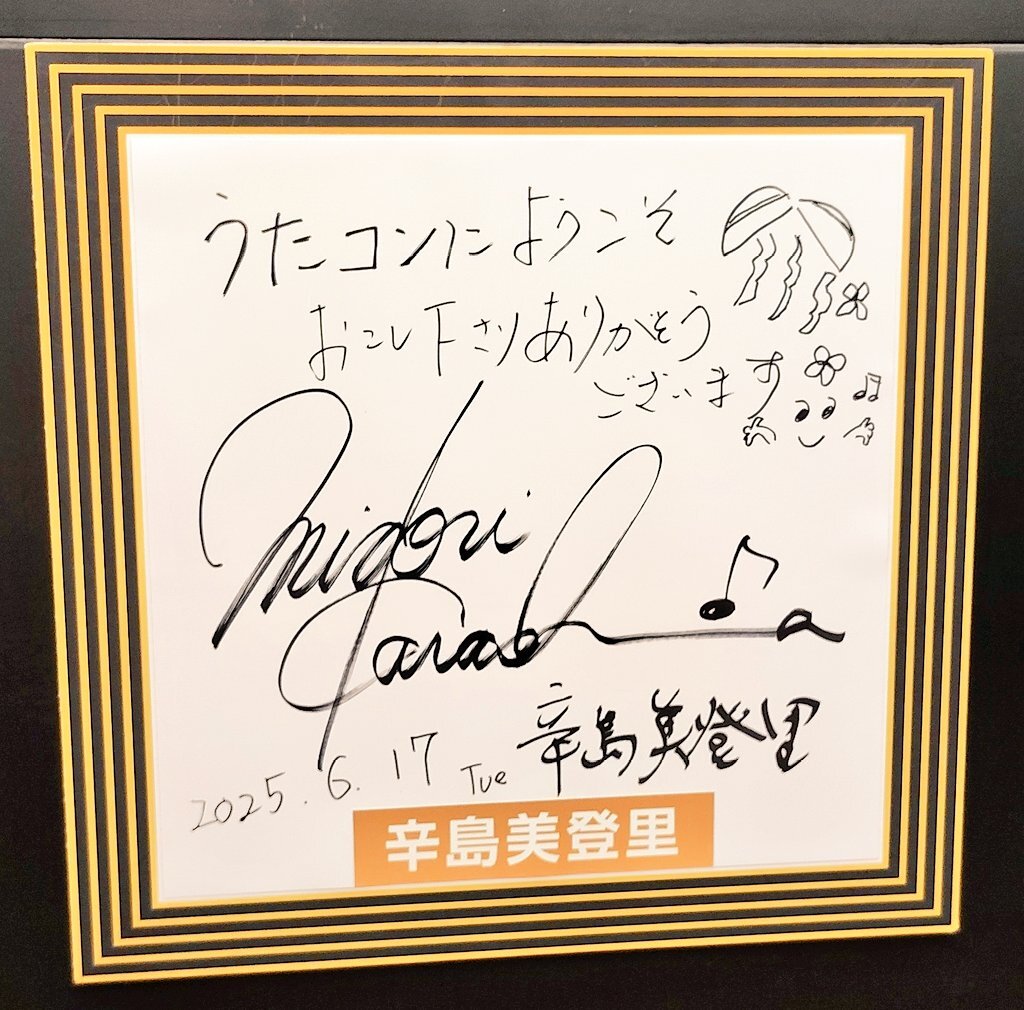 うたコンにようこそ
おこし下さりありがとう
ございます
Midori
Karashima
辛島美登里
2025.6.17 Tue
辛島美登里